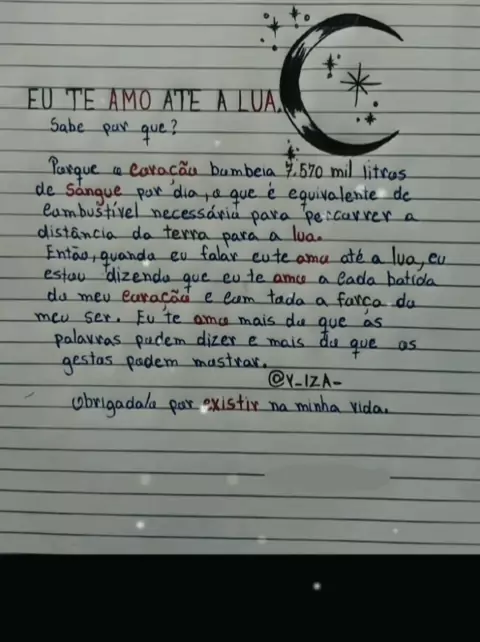 EU TE AMO ATE A LUA.
Sabe por que?
Porque o coração bombeia 7.570 mil litros
de Sangue por dia, o que é equivalente de
combustível necessário para percorrer a
distância da terra para a lua.
Então, quando eu falar eu te amo até a lua, eu
estou dizendo que eu te amo a cada batida
do meu coração e com toda a força do
meu ser. Eu te amo mais do que as
palavras podem dizer e mais do que os
gestos podem mostrar.
@Y_IZA-
Obrigada/o por existir na minha vida.